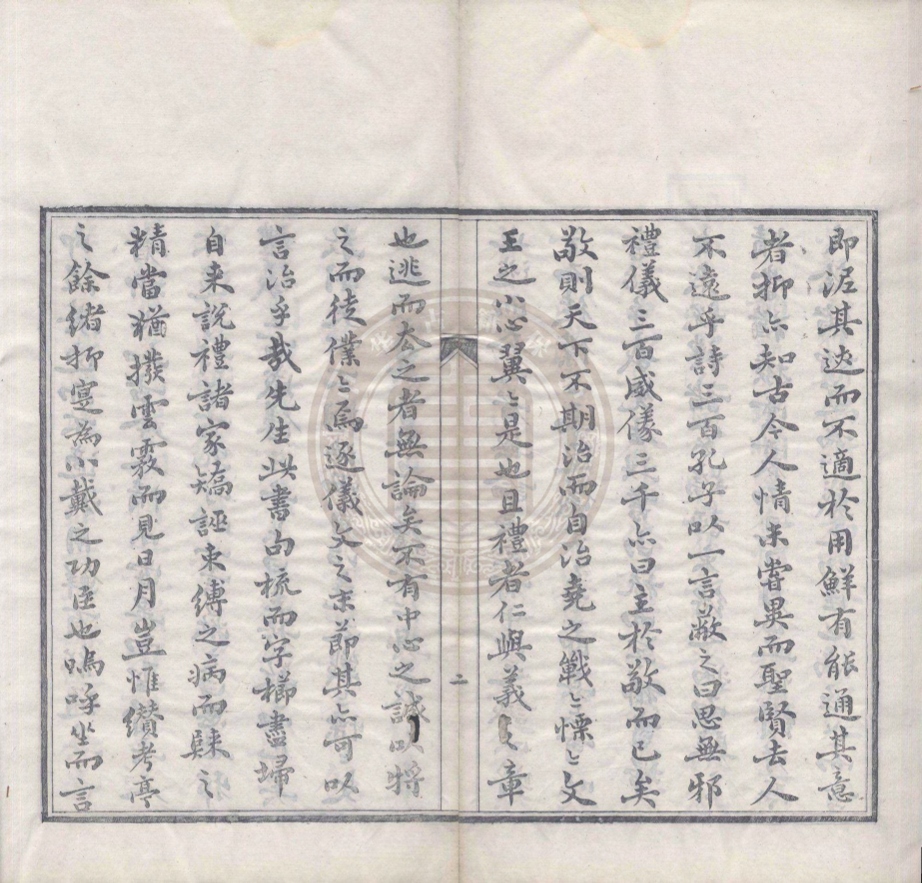 即泥其迹而不適於用鮮有能通其意
者抑亦知古今人情未嘗異而聖賢去人
不遠乎詩三百孔子以一言蔽之曰思無邪
禮儀三百威儀三千亦曰主於敬而已矣
敬則天下不期治而自治堯之戰〻慄〻文
王之小心翼〻是也且禮者仁與義之章
也逃而去之者無論矣不有中心之誠以將
之而徒僕〻焉逐儀文之末節其亦可以
言治乎哉先生此書句梳而字櫛盡埽
自来說禮諸家矯誣束縛之病而隸之
精當猶撥雲霧而見日月豈惟纘考亭
之餘緒抑寔為小戴之功臣也嗚呼坐而言
二